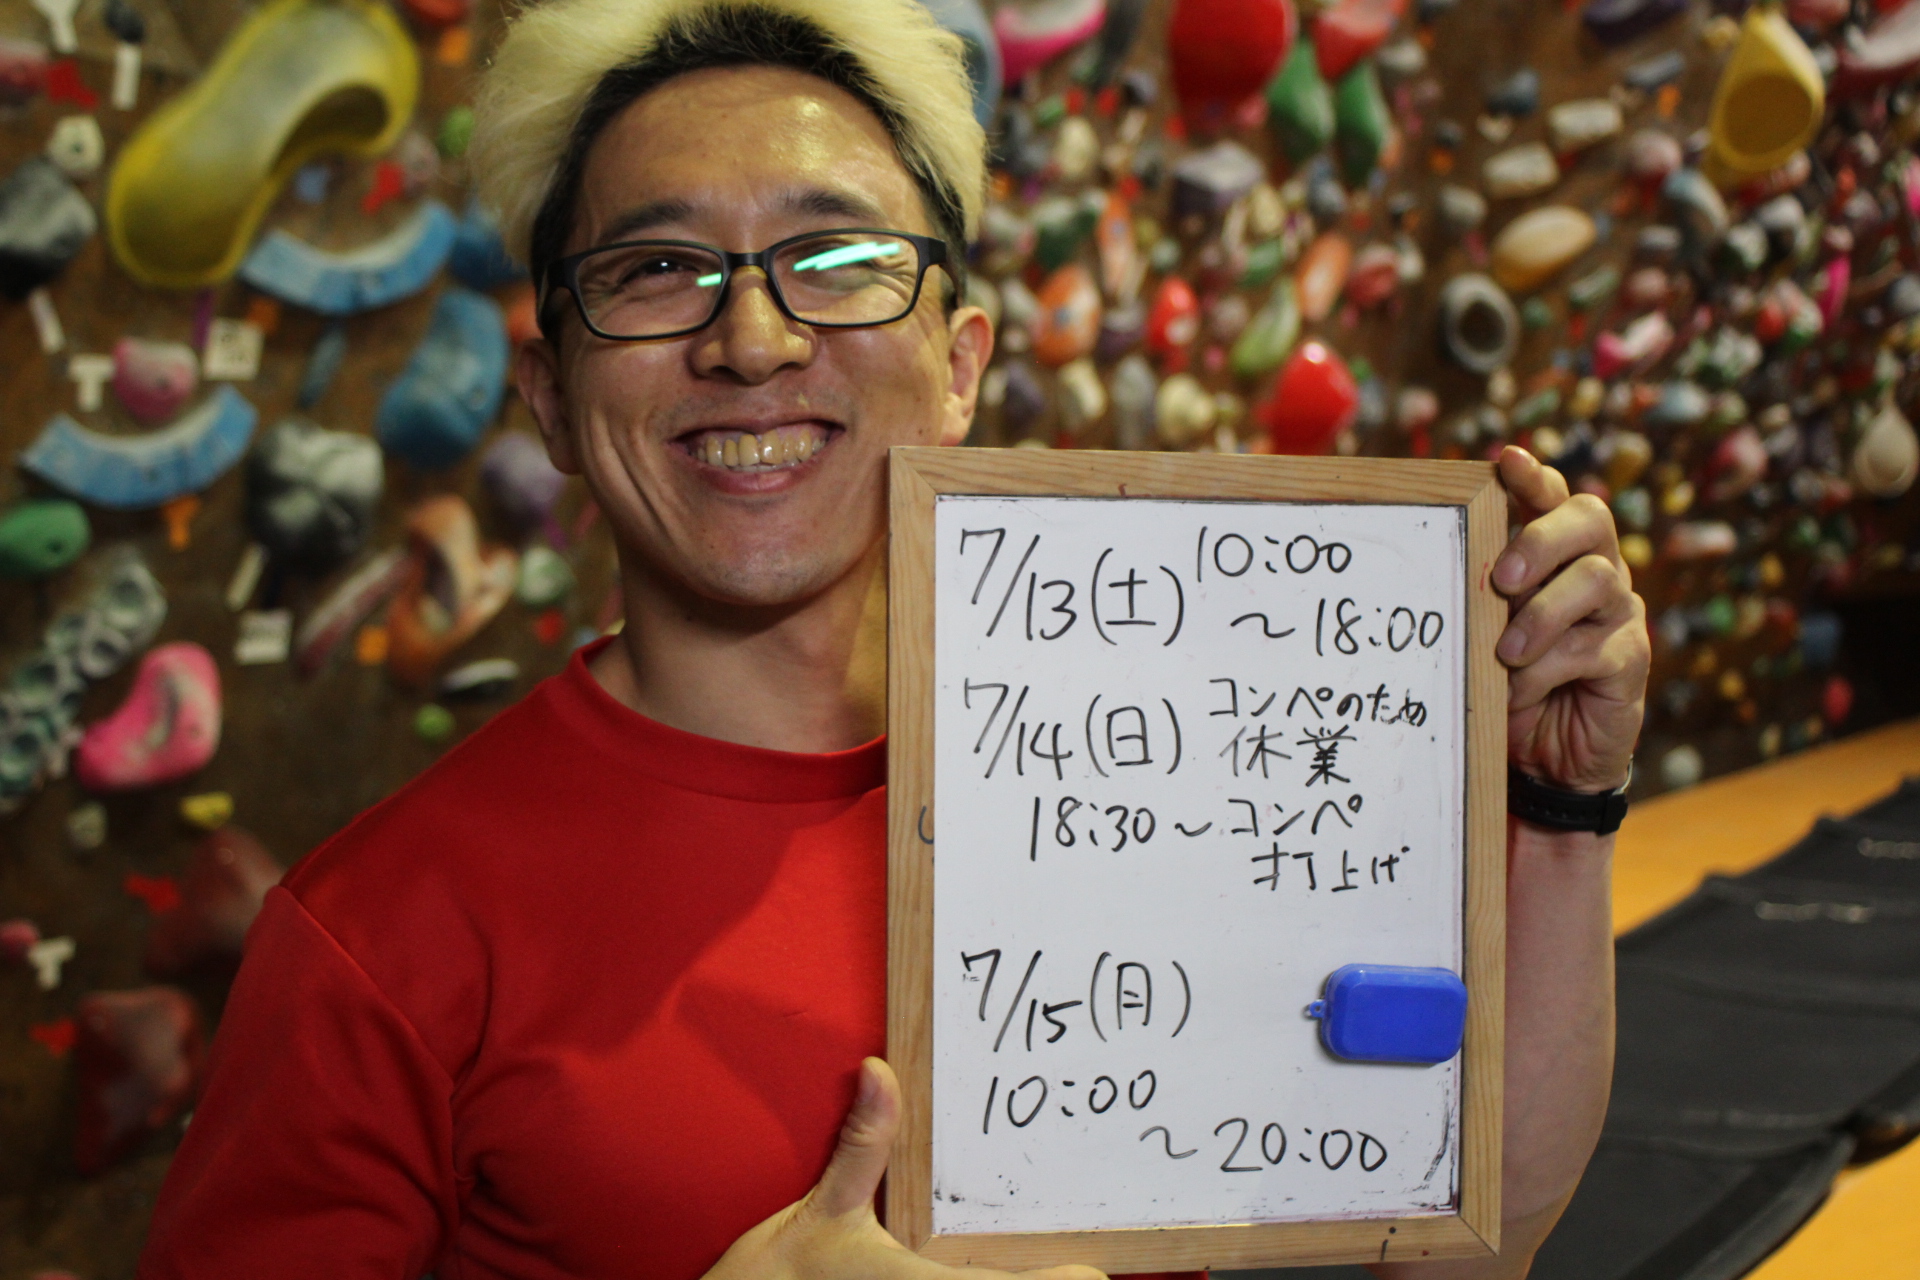 7/13(土) 10:00
～18:00
7/14(日) コンペのため
休業
18:30～コンペ
打上げ
7/15(月)
10:00
～20:00